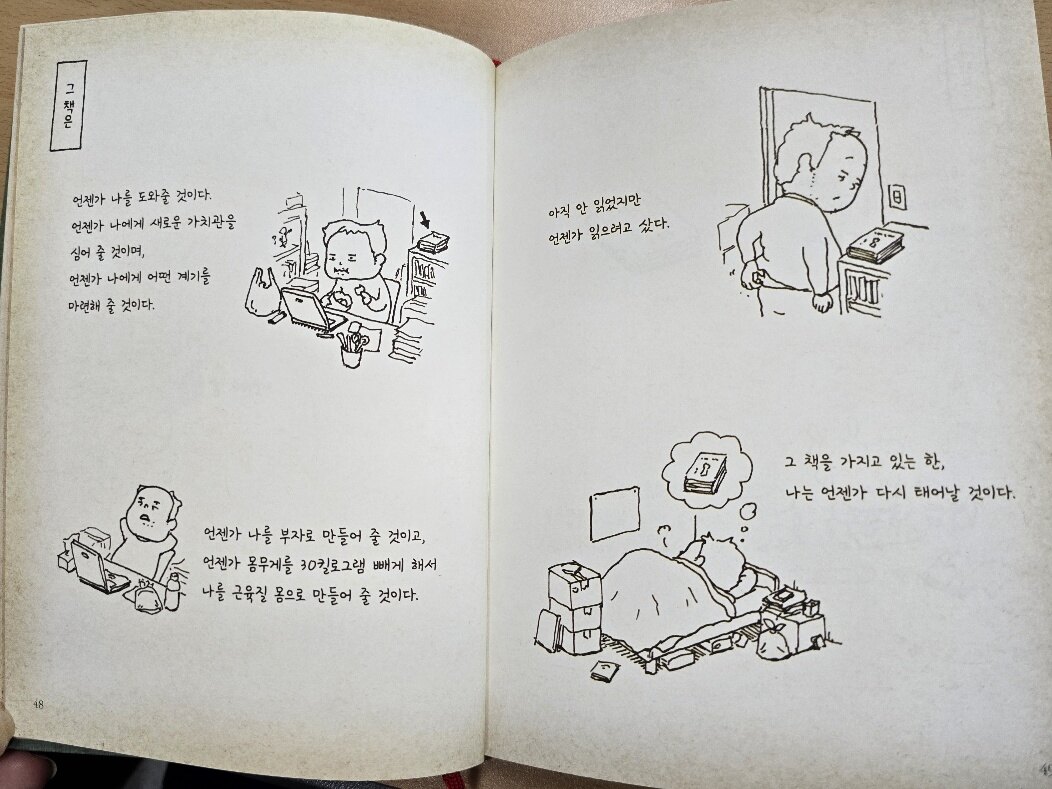 그 책은
언젠가 나를 도와줄 것이다.
언젠가 나에게 새로운 가치관을
심어 줄 것이며,
언젠가 나에게 어떤 계기를
마련해 줄 것이다.
언젠가 나를 부자로 만들어 줄 것이고,
언젠가 몸무게를 30킬로그램 빼게 해서
나를 근육질 몸으로 만들어 줄 것이다.
48
아직 안 읽었지만
언젠가 읽으려고 샀다.
그 책을 가지고 있는 한,
나는 언젠가 다시 태어날 것이다.